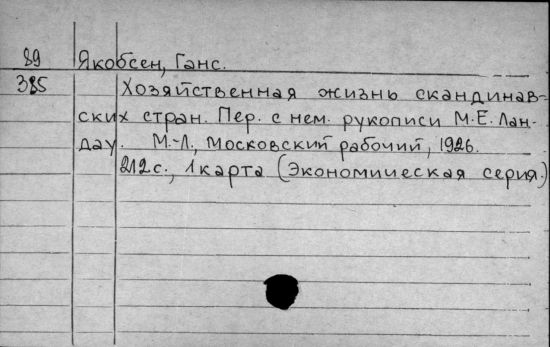 89 Якобсен, Ганс.
385 Хозяйственная жизнь скандинав-
ских стран. Пер. с нем. рукописи М.Е. Лан-
дау. М.-Л., Московский рабочий, 1926.
212 с., 1 карта (Экономическая серия.)